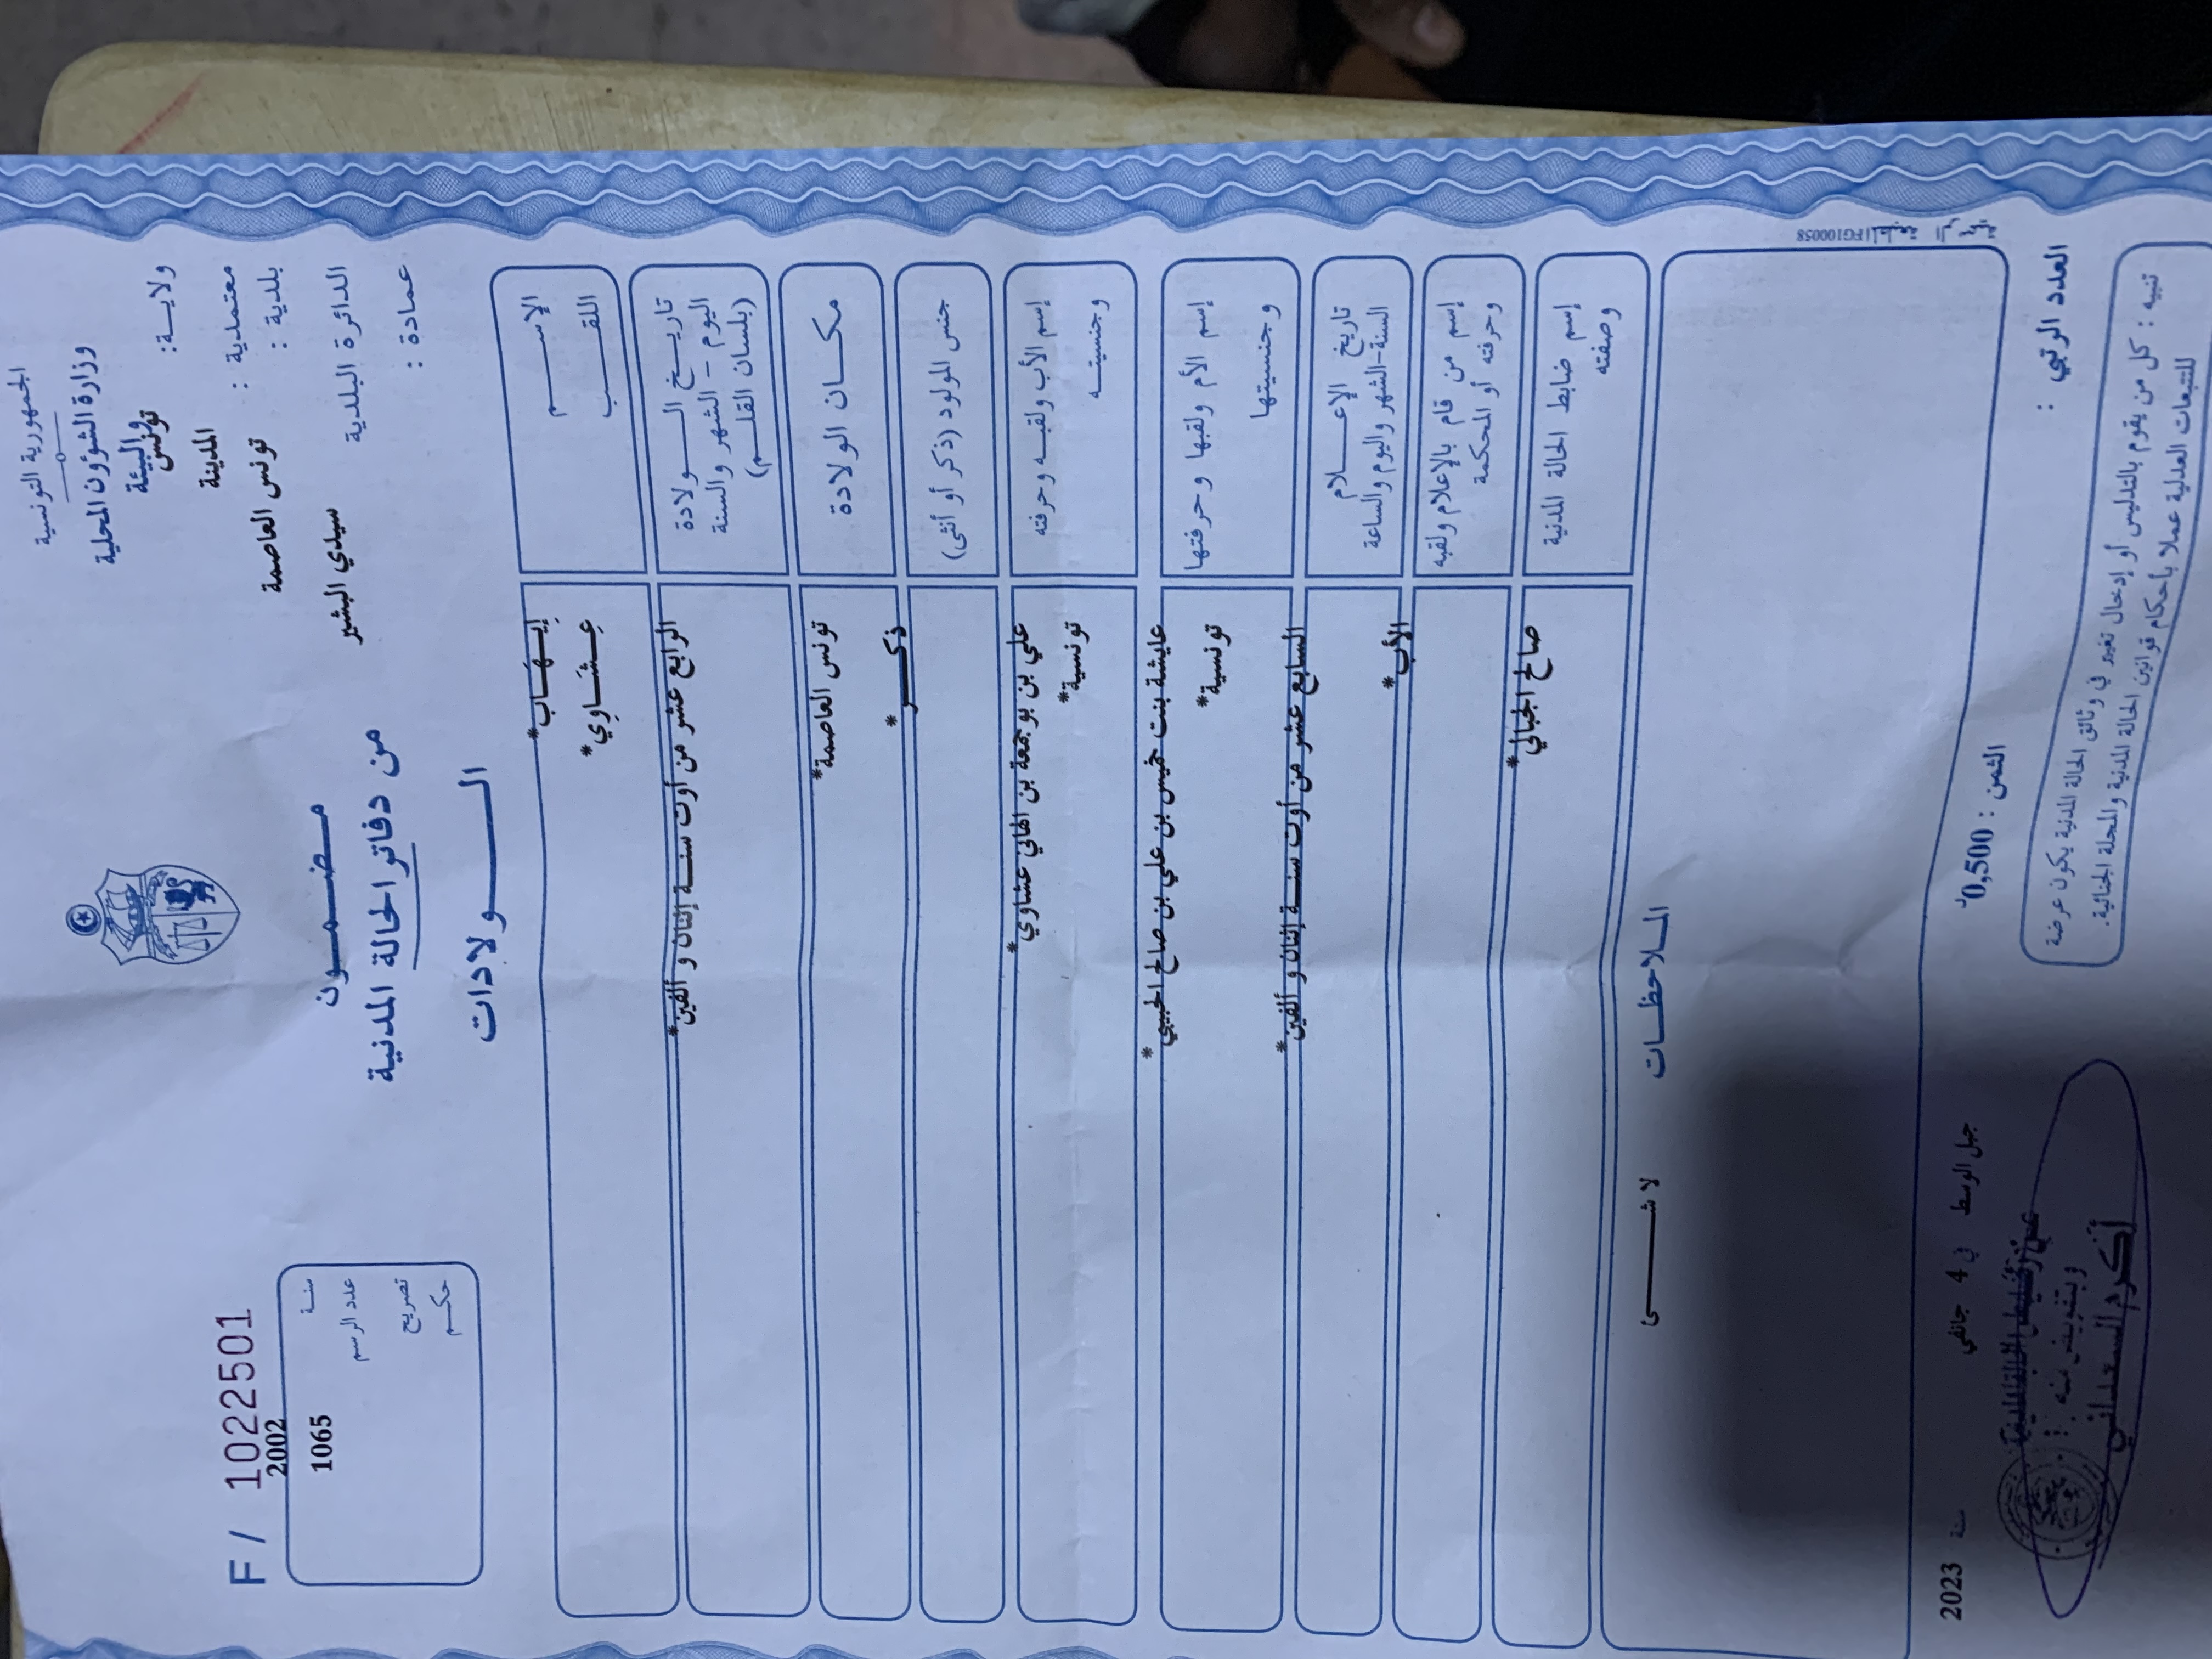 الجمهورية التونسية
وزارة الشؤون المحلية
والبيئة
ولايــة: تونس
معتمدية : المدينة
بلدية : تونس العاصمة
الدائرة البلدية سيدي البشير
عمادة :
مـضـمـون
من دفاتر الحالة المدنية
الــــولادات
F / 1022501
سنة 2002
عدد الرسم 1065
تصريح
حكم
الإســـم إِيـهَـاب*
اللقـــب عِـشَـاوِي*
تاريــخ الــــولادة
اليوم - الشهر والسنة
(بلسان القلــم)
الرابع عشر من أوت سنــة إثنان و ألفين*
مكــان الولادة تونس العاصمة*
جنس المولود (ذكر أو أنثى) ذكــر*
إسم الأب ولقبــه وحرفته علي بن بوجمعة بن الهاني عشاوي*
وجنسيتــه تونسية*
إسم الأم ولقبها وحرفتها عايشة بنت خميس بن علي بن صالح الحبيبي*
وجنسيتها تونسية*
تاريخ الإعـــلام
السنة-الشهر واليوم والساعة
السابع عشر من أوت سنــة إثنان و ألفين*
إسم من قام بالإعلام ولقبه
وحرفته أو المحكمة
الأب*
إسم ضابط الحالة المدنية
وصفته
صالح الجبالي*
الملاحظــات
لا شــــى
المطبعة الرسمية FG100058
الثمن : 0,500د
جبل الوسط في 4 جانفي سنة 2023
العدد الرتبي :
تنبيه : كل من يقوم بالتدليس أو إدخال تغيير في وثائق الحالة المدنية يكون عرضة
للتتبعات العدلية عملا بأحكام قوانين الحالة المدنية والمجلة الجنائية.
وبتفويض منه
أكرم السعداني